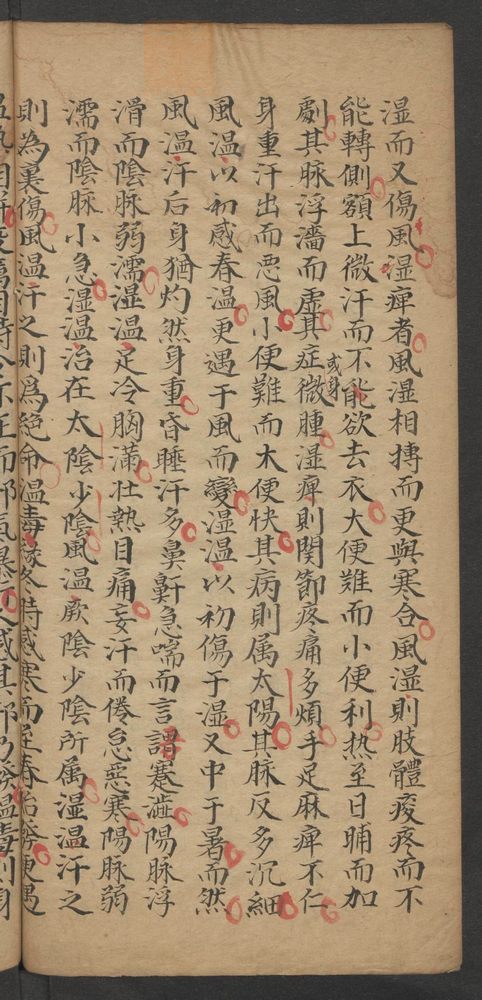 湿而又傷風湿痺者風湿相搏而更與寒合風湿則肢體痠疼而不
能轉側額上微汗而不能欲去衣大便難而小便利热至日晡而加
劇其脉浮濇而虛其症微腫湿痺則関節疼痛多煩手足麻痺不仁
或身
身重汗出而悪風小便難而大便快其病則属太陽其脉反多沉細
風温以初感春温更遇于風而變湿温以初傷于湿又中于暑而然
風温汗后身猶灼然身重昏睡汗多鼻鼾急喘而言語蹇澁陽脉浮
滑而陰脉弱濡湿温足冷胸滿壮熱目痛妄汗而倦怠悪寒陽脉弱
濡而陰脉小急湿温治在太陰少陰風温厥陰少陰所属湿温汗之
則為裏傷風温汗之則爲絶命温毒緣冬時感寒而至春始發更遇